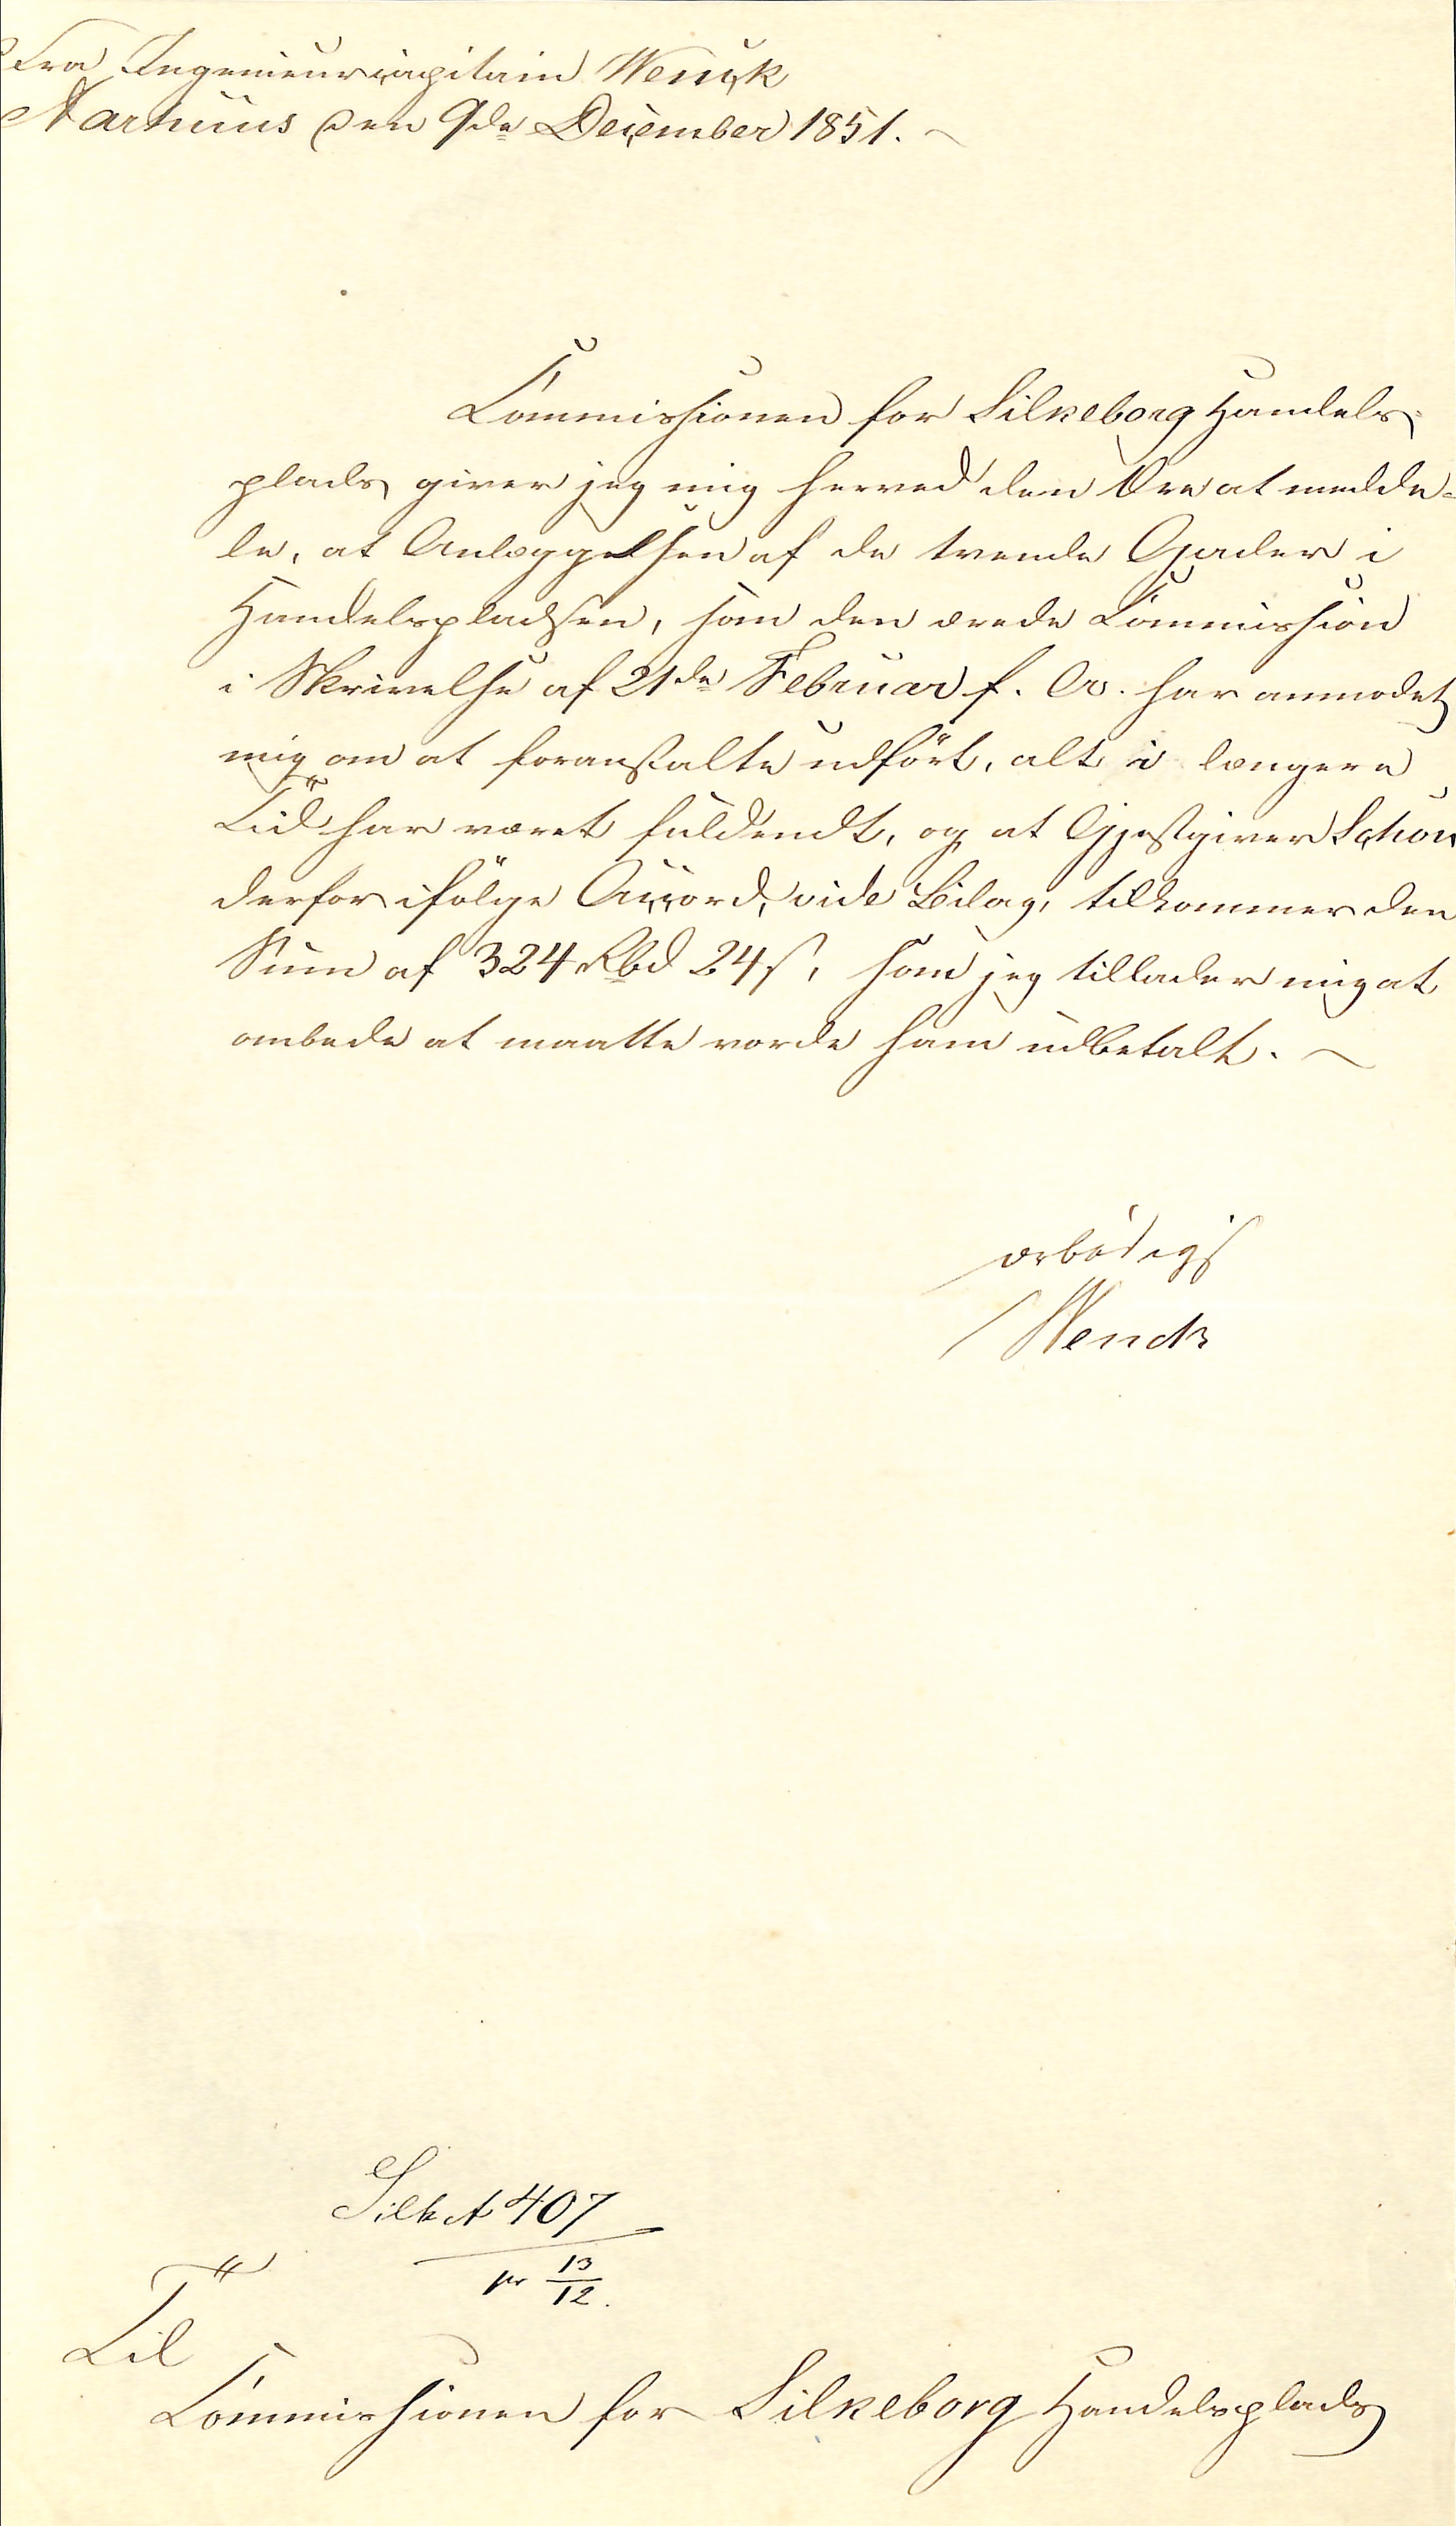 Fra Ingenieurcapitain Wenck
Aarhuus den 9de December 1851.
Commissionen for Silkeborg Handels-
plads giver jeg mig herved den Ære at medde-
le, at Anlæggelsen af de trende Gader i
Handelspladsen, som den ærede Commission
i Skrivelse af 21de Februar f. A. har anmodet
mig om at foranstalte udført, alt i længere
Tid har været fuldendt, og at Gjæstgiver Schou
derfor ifølge Accord, vide Bilag, tilkommer den
Sum af 324 Rbd 24 s, som jeg tillader mig at
anbede at maatte vorde ham udbetalt.
ærbødigst
Wenck
Silk A 407
pr 13/12.
Til
Commissionen for Silkeborg Handelsplads